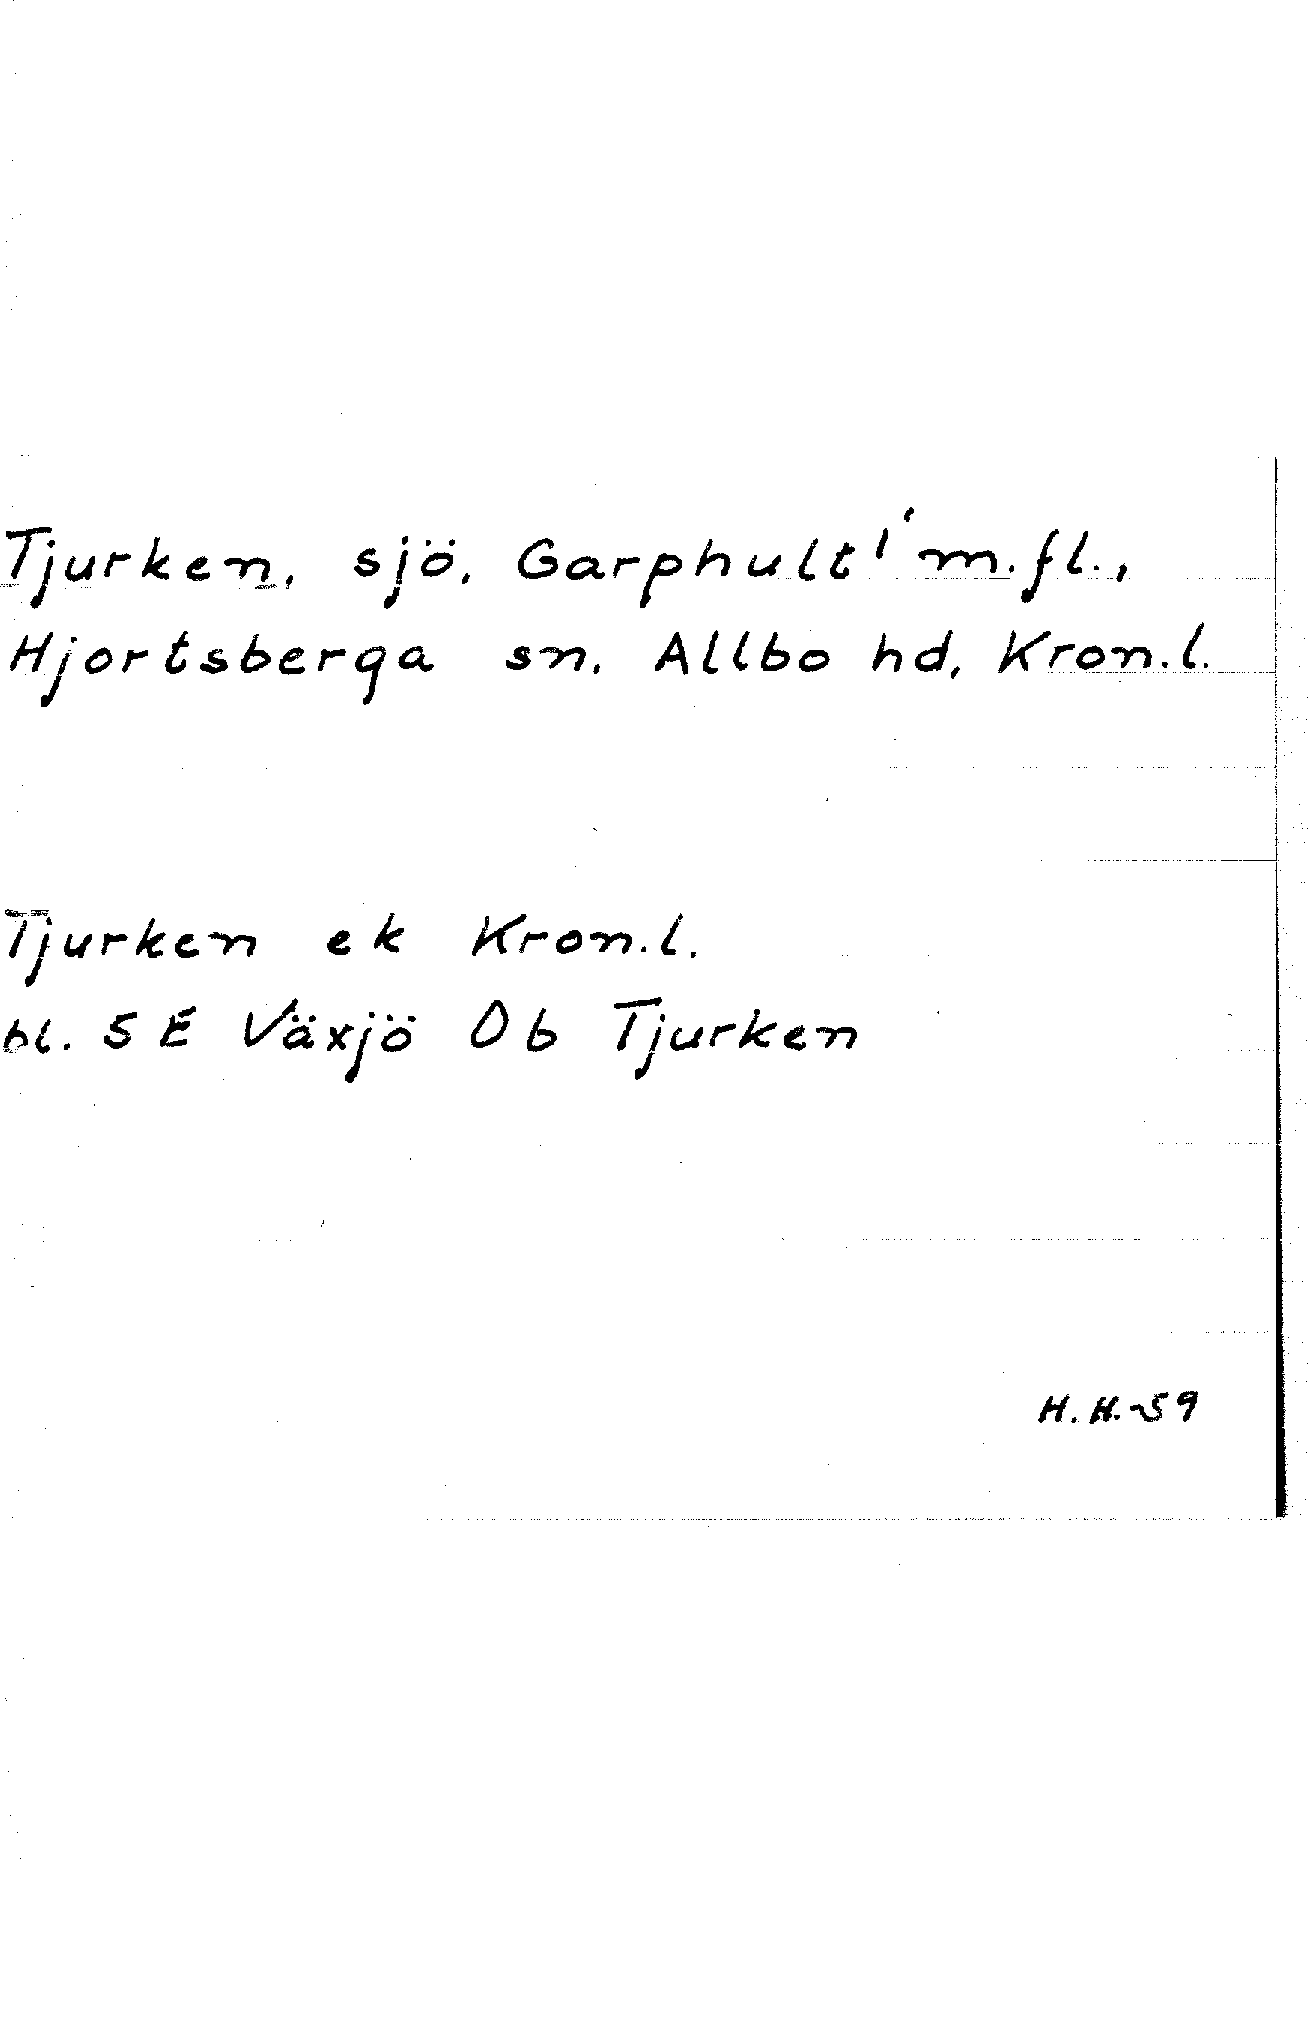 Tjurken, sjö, Garphult m.fl.,
Hjortsberga sn, Allbo hd, Kron.l.
Tjurken ek Kron.l.
bl. 5 E Växjö 0b Tjurken
H.H.-59